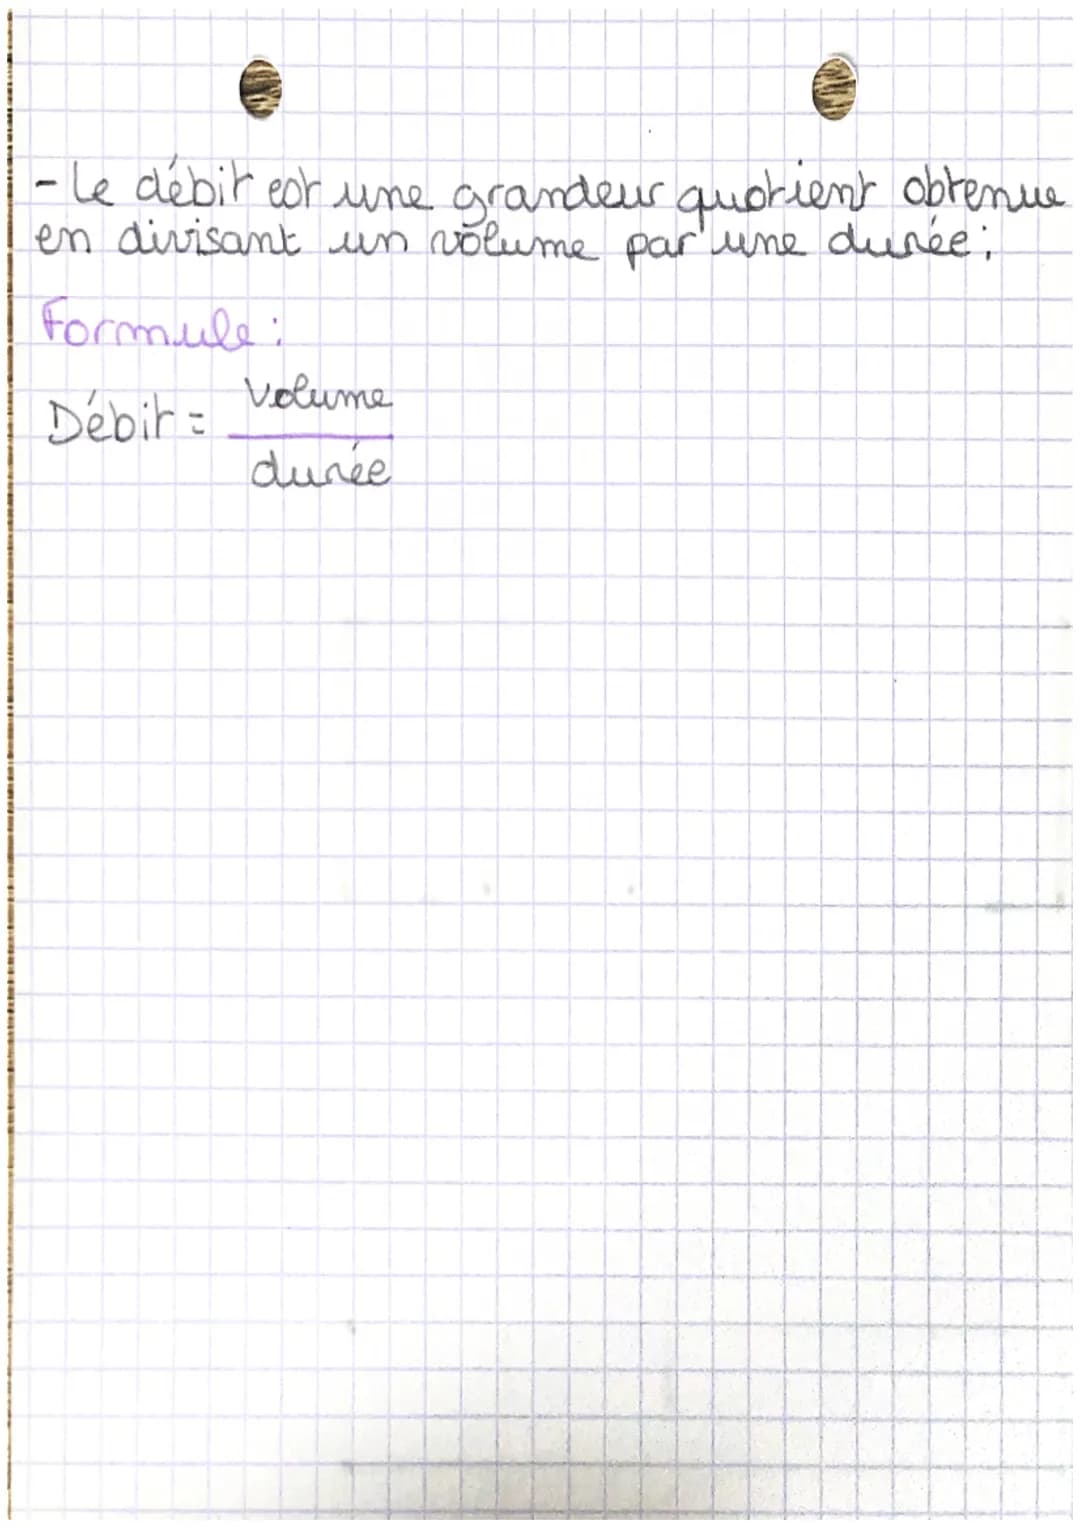 - Le débit est une grandeur quotient obtenue
en divisant un volume par une durée :
Formule :
Débit = Volume
durée